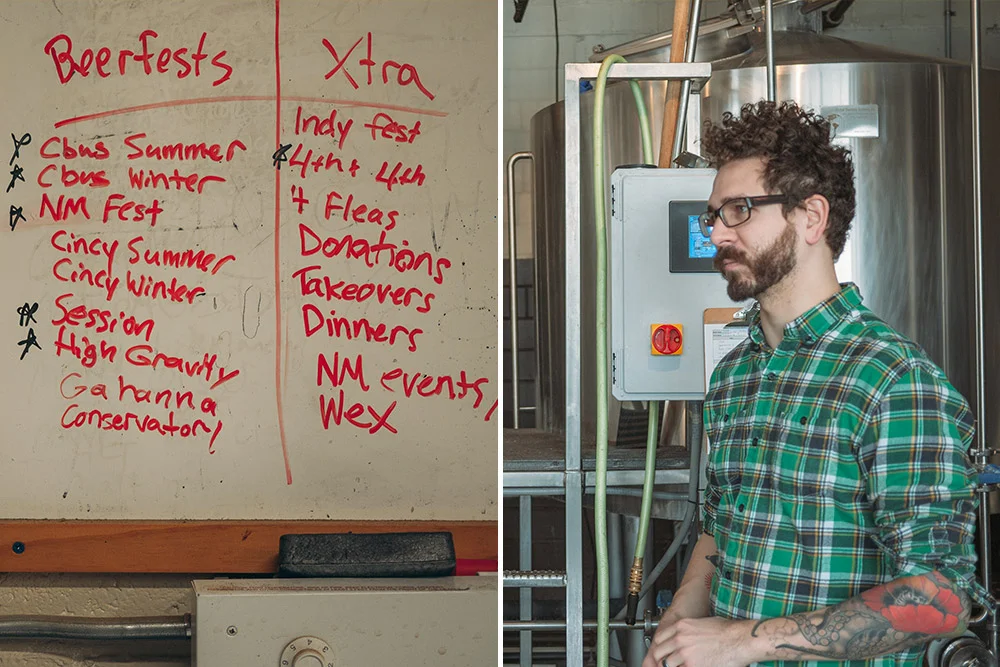 Beerfests
Cbus Summer
Cbus Winter
NM Fest
Cincy Summer
Cincy Winter
Session
High Gravity
Gahanna
Conservatory
Xtra
Indy fest
4th + 4th
4 Fleas
Donations
Takeovers
Dinners
NM events,
Wex